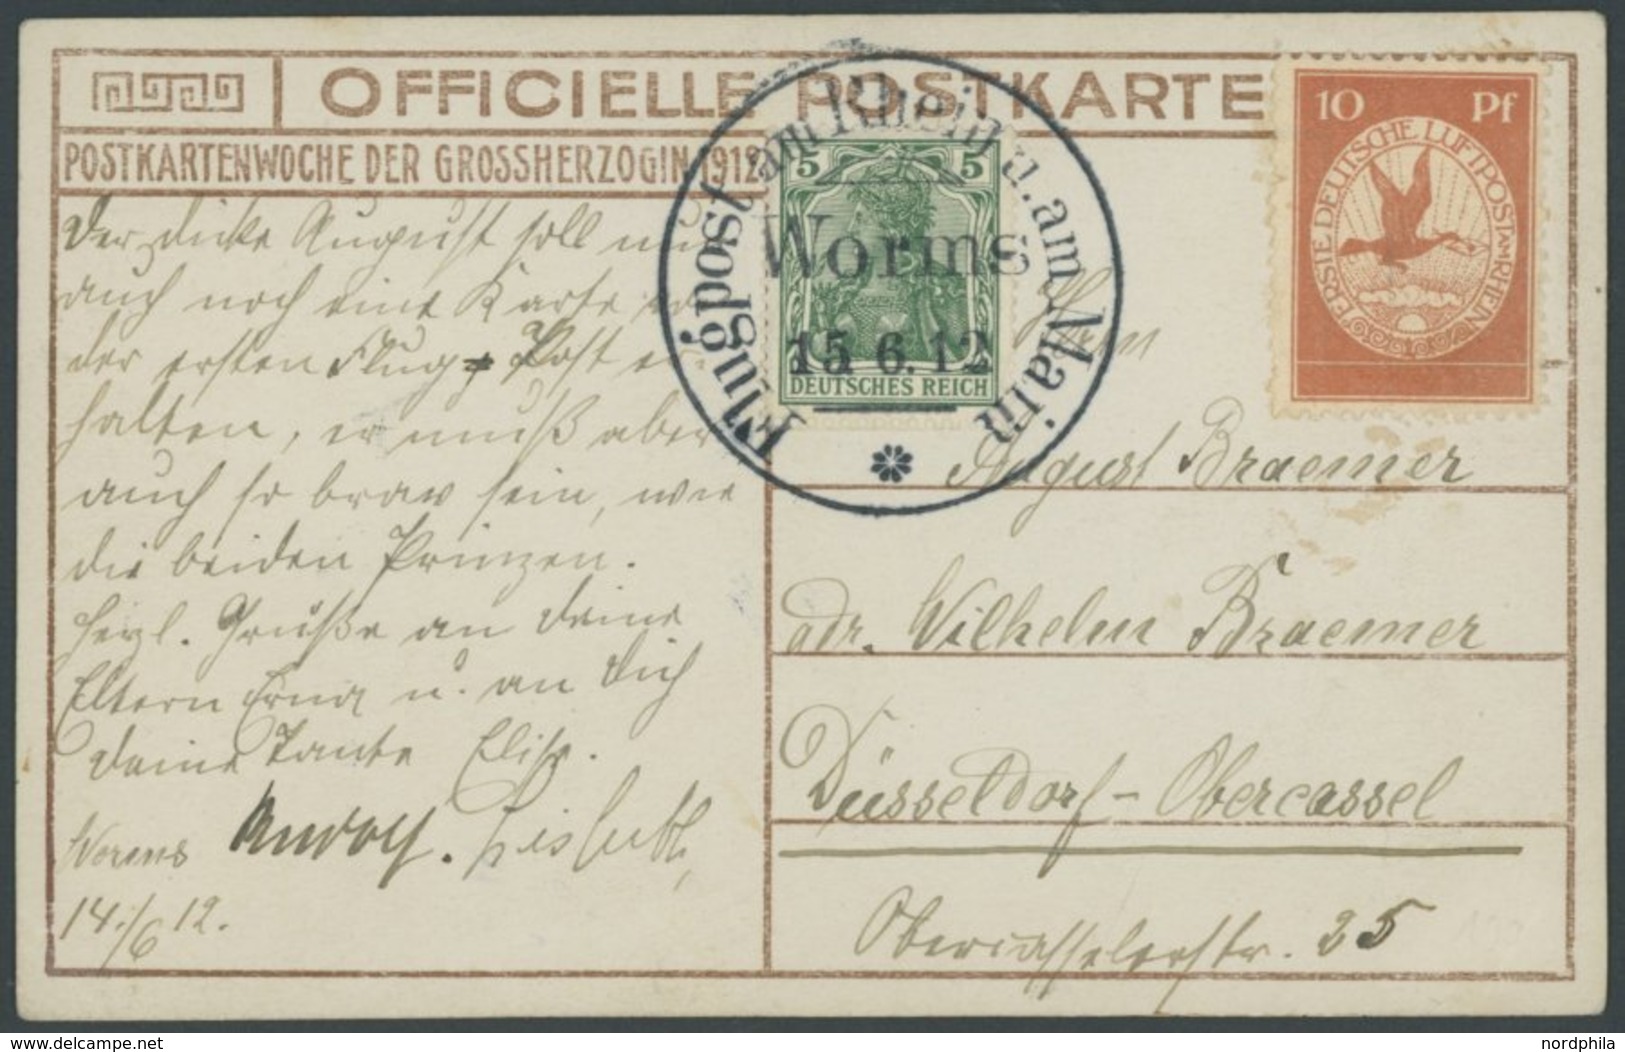 OFFICIELLE POSTKARTE
POSTKARTENWOCHE DER GROSSHERZOGIN 1912
10 Pf
ERSTE DEUTSCHE LUFTPOST AM RHEIN
5 5
DEUTSCHES REICH
Flugpost am Rhein u. am Main
Worms
15 6. 12
Der dicke August soll nun
auch noch eine Karte
der ersten Flug-Post er
halten, er muß aber
auch so brav sein, wie
die beiden Prinzen.
Herzl. Grüße an Deine
Eltern Erna u. an Dich
Deine Tante Elise.
Lisbeth,
Worms
14./6 12.
August Braemer
adr. Wilhelm Braemer
Düsseldorf-Obercassel
Obercasselerstr. 25
(C) www.delcampe.net
nordphila